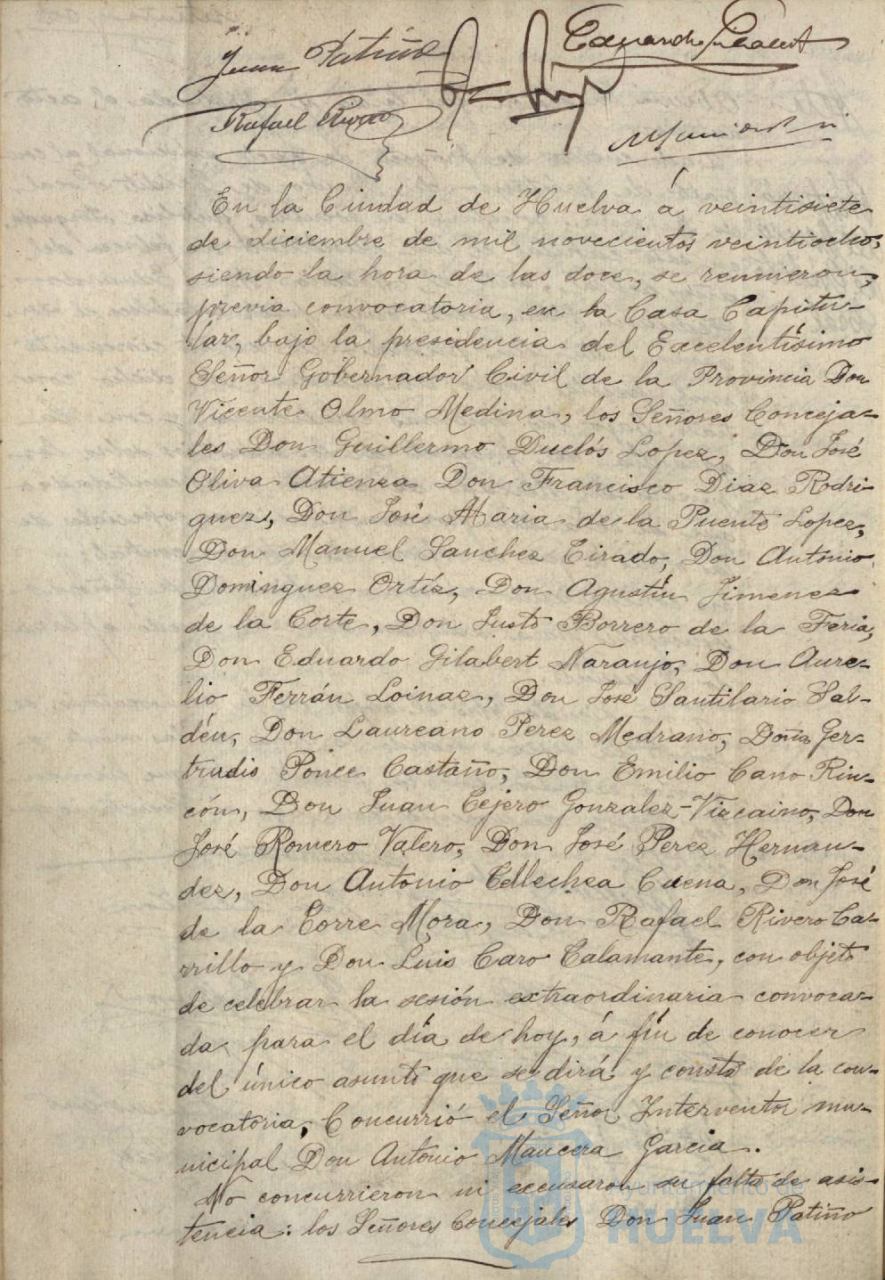 Juan Patiño
Eduardo Gilabert
Rafael Rivero
En la Ciudad de Huelva á veintisiete
de diciembre de mil novecientos veintiocho,
siendo la hora de las doce, se reunieron,
previa convocatoria, en la Casa Capitu-
lar, bajo la presidencia del Excelentísimo
Señor Gobernador Civil de la Provincia Don
Vicente Olmo Medina, los Señores Conceja-
les Don Guillermo Duclós Lopez, Don José
Oliva Atienza Don Francisco Diaz Rodri-
guez, Don José Maria de la Puente Lopez,
Don Manuel Sanchez Tirado, Don Antonio
Dominguez Ortíz, Don Agustín Jimenez
de la Corte, Don Justo Borrero de la Feria,
Don Eduardo Gilabert Naranjo, Don Aure-
lio Ferrán Loinaz, Don José Santilario Sal-
déu, Don Laureano Perez Medrano, Doña Ger-
trudis Ponce Castaño, Don Emilio Cano Rin-
cón, Don Juan Tejero Gonzalez-Vizcaino, Don
José Romero Valero, Don José Perez Hernan-
dez, Don Antonio Tellechea Cuena, Don José
de la Torre Mora, Don Rafael Rivero Ca-
rrillo y Don Luis Caro Talamante, con objeto
de celebrar la sesión extraordinaria convoca-
da para el día de hoy, á fín de conocer
del único asunto que se dirá y consta de la con-
vocatoria, Concurrió el Señor Interventor mu-
nicipal Don Antonio Mancera Garcia.
No concurrieron ni excusaron su falta de asis-
tencia: los Señores Concejales Don Juan Patiño
Ayuntamiento de
HUELVA